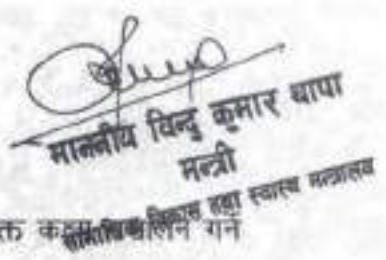 माननीय विन्दु कुमार थापा
मन्त्री
सामाजिक विकास तथा स्वास्थ्य मन्त्रालय
गर्न